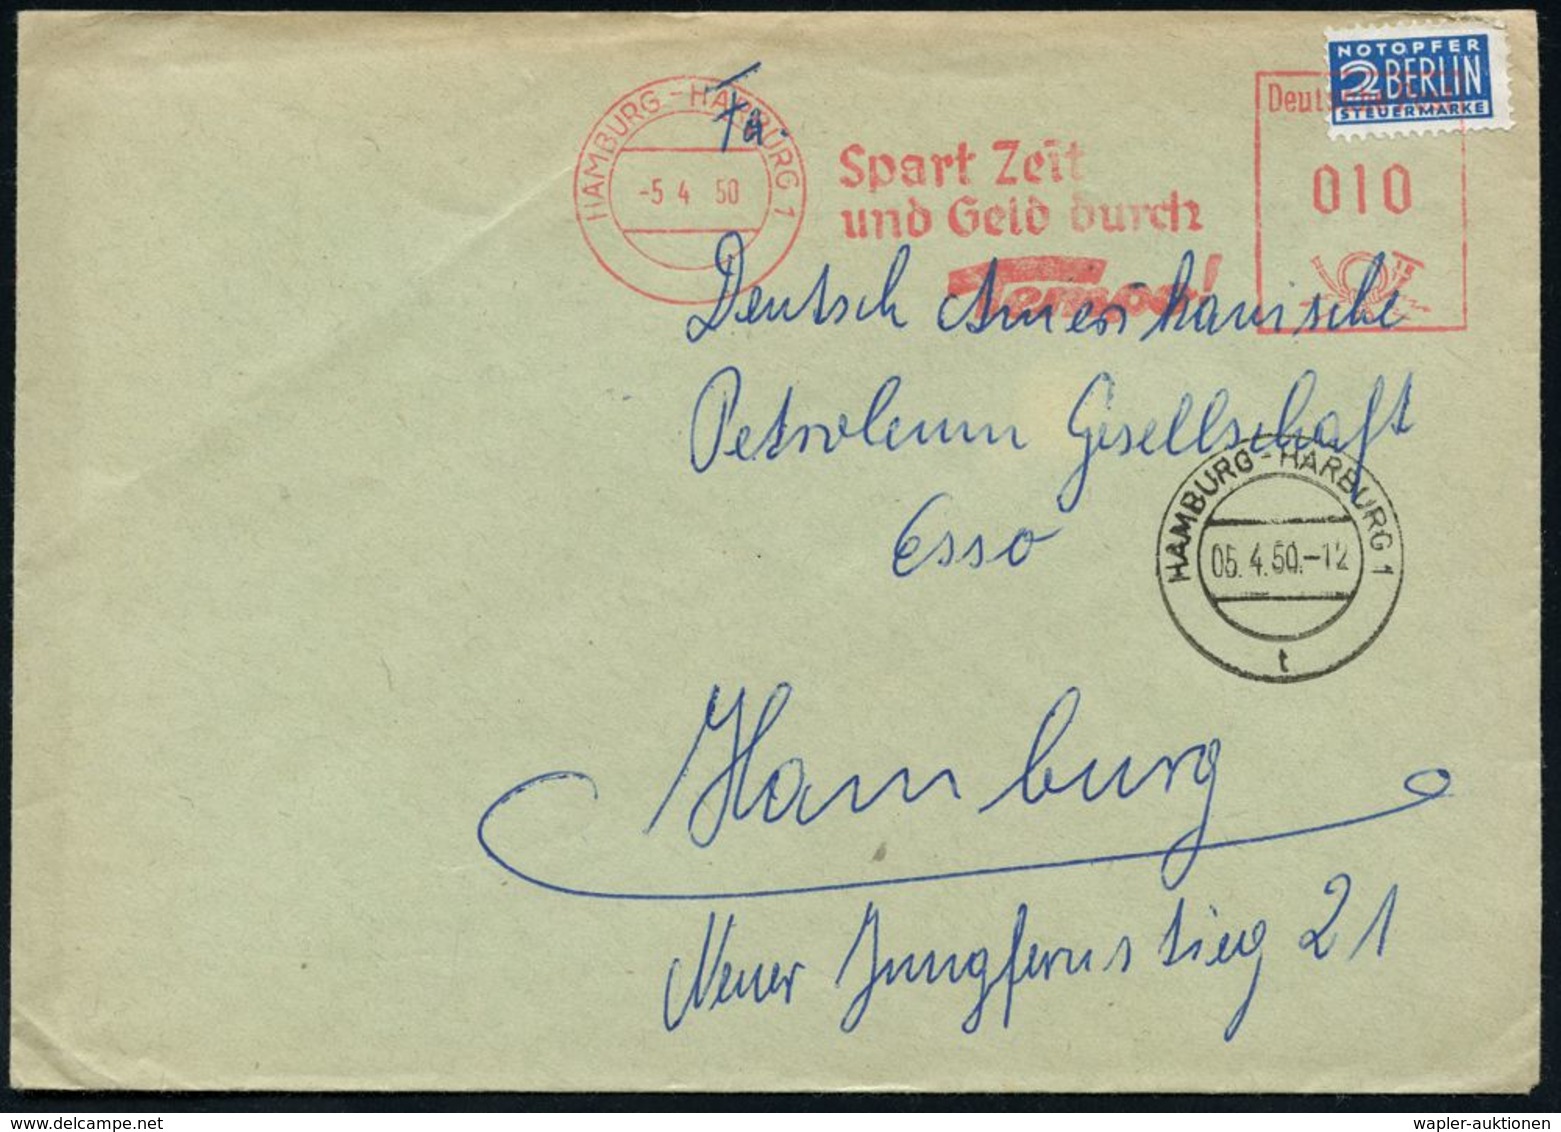 HAMBURG-HARBURG 1
-5 4 50
Spart Zeit
und Geld durch
Tempo!
Deutsche Post
010
NOTOPFER
2 BERLIN
STEUERMARKE
Fa.
Deutsch Amerikanische
Petroleum Gesellschaft
Esso
HAMBURG-HARBURG 1
05.4.50.-12
t
Hamburg
Neuer Jungfernstieg 21
wapler-auktionen